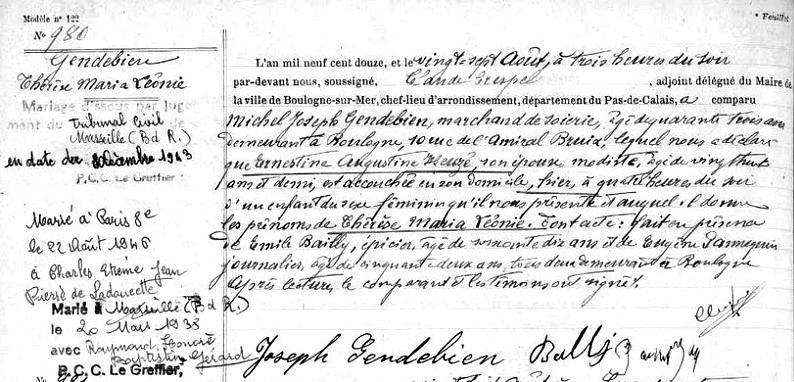 Modèle n° 122
Feuillet
N° 980
Gendebien
Thérèse Maria Léonie
Mariage dissous par juge
ment du Tribunal Civil de
Marseille (B d R.)
en date du 8 Décembre 1943
P.C.C. Le Greffier:
Marié à Paris 8e
le 22 Août 1946
à Charles Etienne Jean
Pierre de Ladoucette
Marié à Marseille (B d R.)
le 20 Mars 1938
avec Raymond Honoré
Baptistin Gérard
P.C.C. Le Greffier,
L'an mil neuf cent douze, et le vingt sept Août, à trois heures du soir
par-devant nous, soussigné, Claude Crespel, adjoint délégué du Maire de
la ville de Boulogne-sur-Mer, chef-lieu d'arrondissement, département du Pas-de-Calais, a comparu
Michel Joseph Gendebien, marchand de soierie, âgé de quarante trois ans
demeurant à Boulogne, 10 rue de l'Amiral Bruix, lequel nous a déclaré
que Ernestine Augustine Heuzé, son épouse, modiste, âgée de vingt huit
ans et demi, est accouchée en son domicile, hier, à quatre heures du soir
d'un enfant du sexe féminin qu'il nous présente et auquel il donne
les prénoms de Thérèse Maria Léonie. Dont acte: fait en présence
de Emile Bailly, épicier, âgé de soixante dix ans et de Eugène Pannequin
journalier, âgé de cinquante deux ans, tous deux demeurant à Boulogne
Après lecture, le comparant et les témoins ont signé.
Joseph Gendebien Bailly